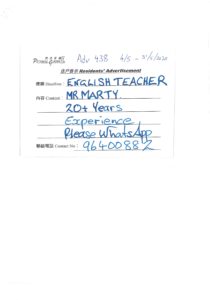 Adv 438 4/5 - 31/5/2021
住戶廣告 Residents' Advertisement
標題 Headline: ENGLISH TEACHER
內容 Content: MR MARTY
20+ Years
Experience
Please WhatsApp
聯絡電話 Contact No: 96400882